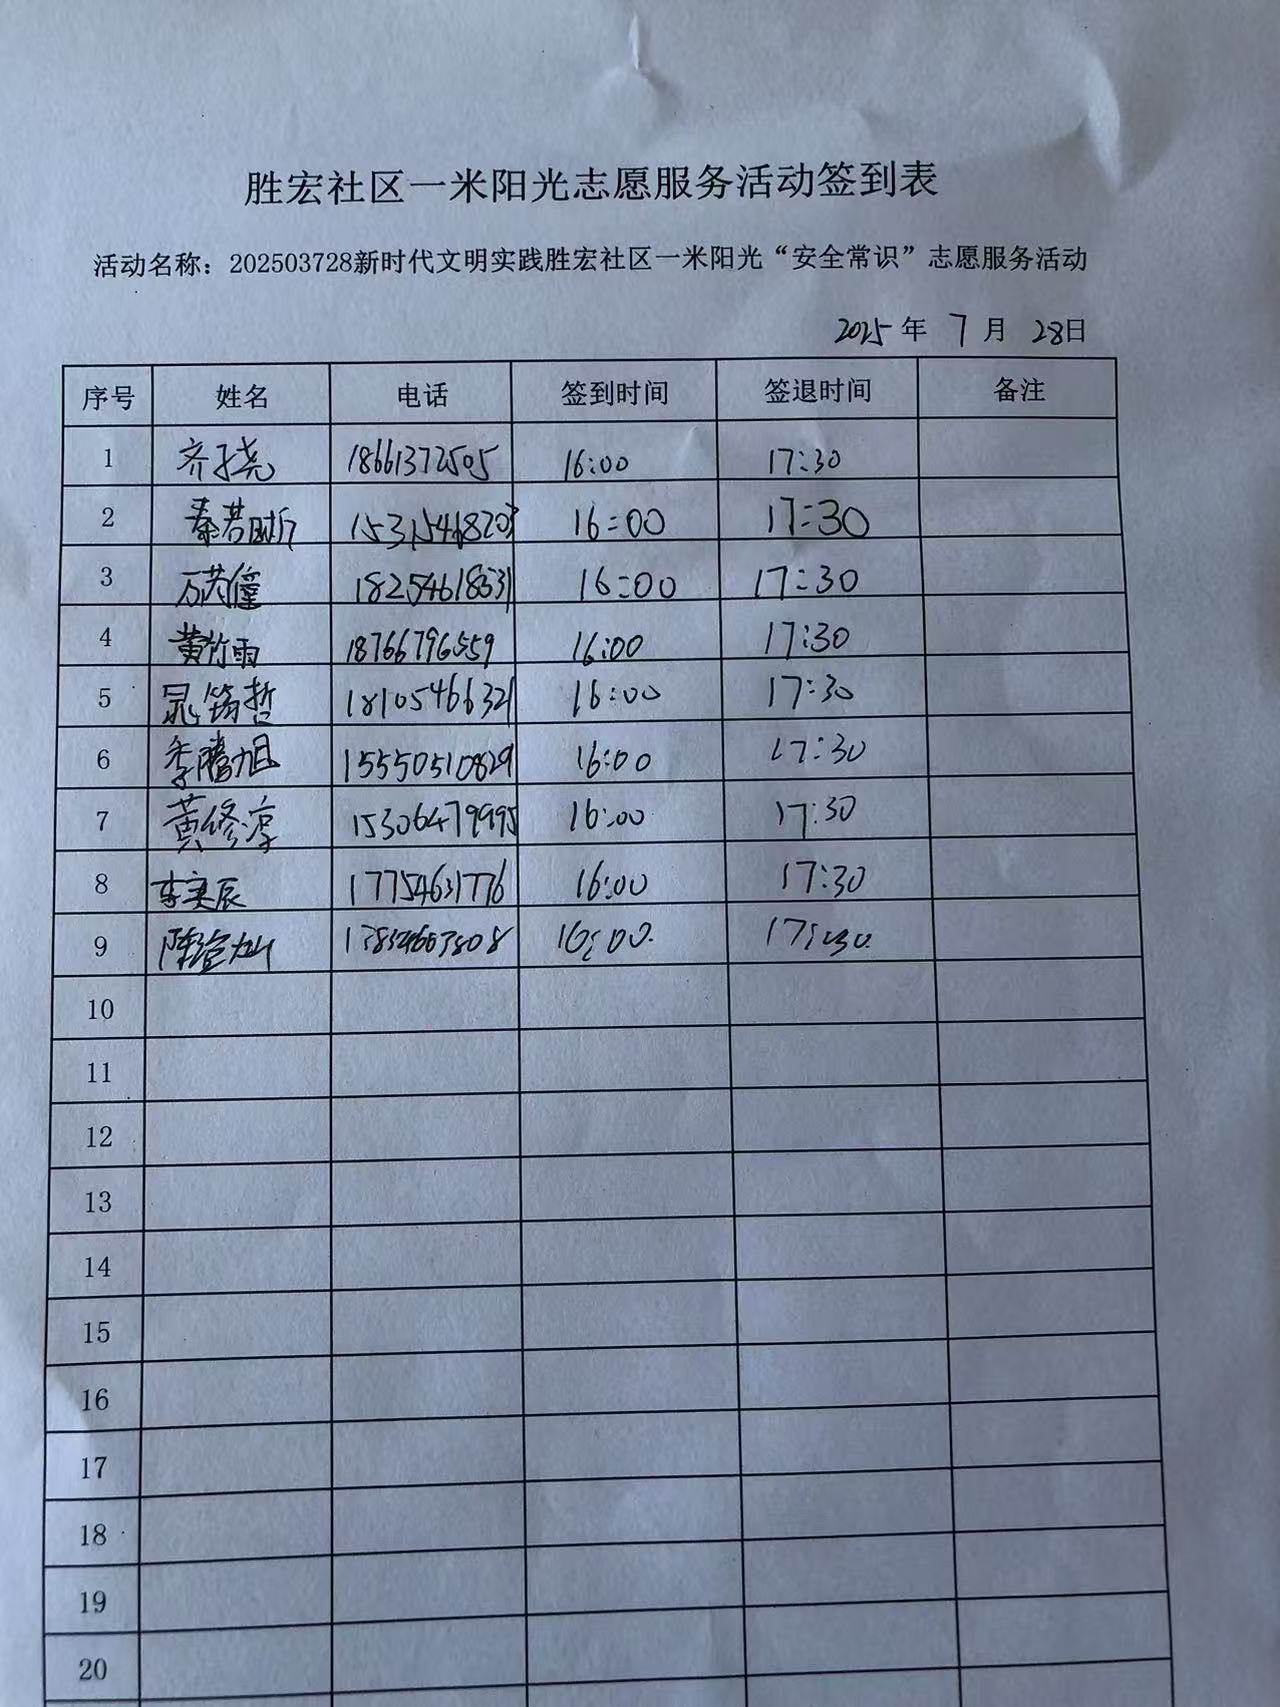 胜宏社区一米阳光志愿服务活动签到表
活动名称：202503728新时代文明实践胜宏社区一米阳光“安全常识”志愿服务活动
2025 年 7 月 28日
序号 姓名 电话 签到时间 签退时间 备注
1 齐子尧 18661372505 16:00 17:30
2 秦若昕 15315468203 16:00 17:30
3 万芮僮 18254618531 16:00 17:30
4 黄竹雨 18766796559 16:00 17:30
5 晁筠哲 18105466321 16:00 17:30
6 季腾旭 15550510829 16:00 17:30
7 黄修淳 15306479995 16:00 17:30
8 李奕辰 17754631776 16:00 17:30
9 16:00 17:30
10
11
12
13
14
15
16
17
18
19
20